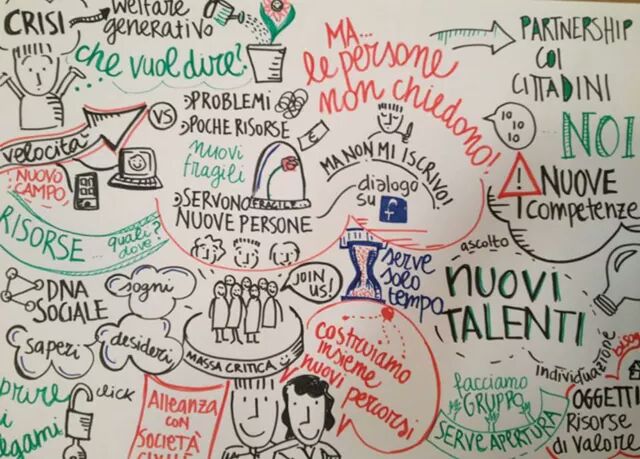 CRISI
welfare
generativo
che vuol dire?
velocità
VS
NUOVO
CAMPO
PROBLEMI
POCHE RISORSE
nuovi
fragili
SERVONO
NUOVE PERSONE
FRAGILE
€
RISORSE... quali?
dove?
MA...
le persone
non chiedono!
MA NON MI ISCRIVO!
dialogo
su f
PARTNERSHIP
COI
CITTADINI
IO
IO
IO
NOI
!
NUOVE
competenze
ascolto
serve
solo
tempo
NUOVI
TALENTI
DNA
SOCIALE
sogni
saperi
desideri
JOIN
US!
MASSA CRITICA
costruiamo
insieme
nuovi
percorsi
click
Alleanza
con
società
civile
facciamo
GRUPPO
SERVE APERTURA
individuazione
OGGETTI
Risorse
di valore